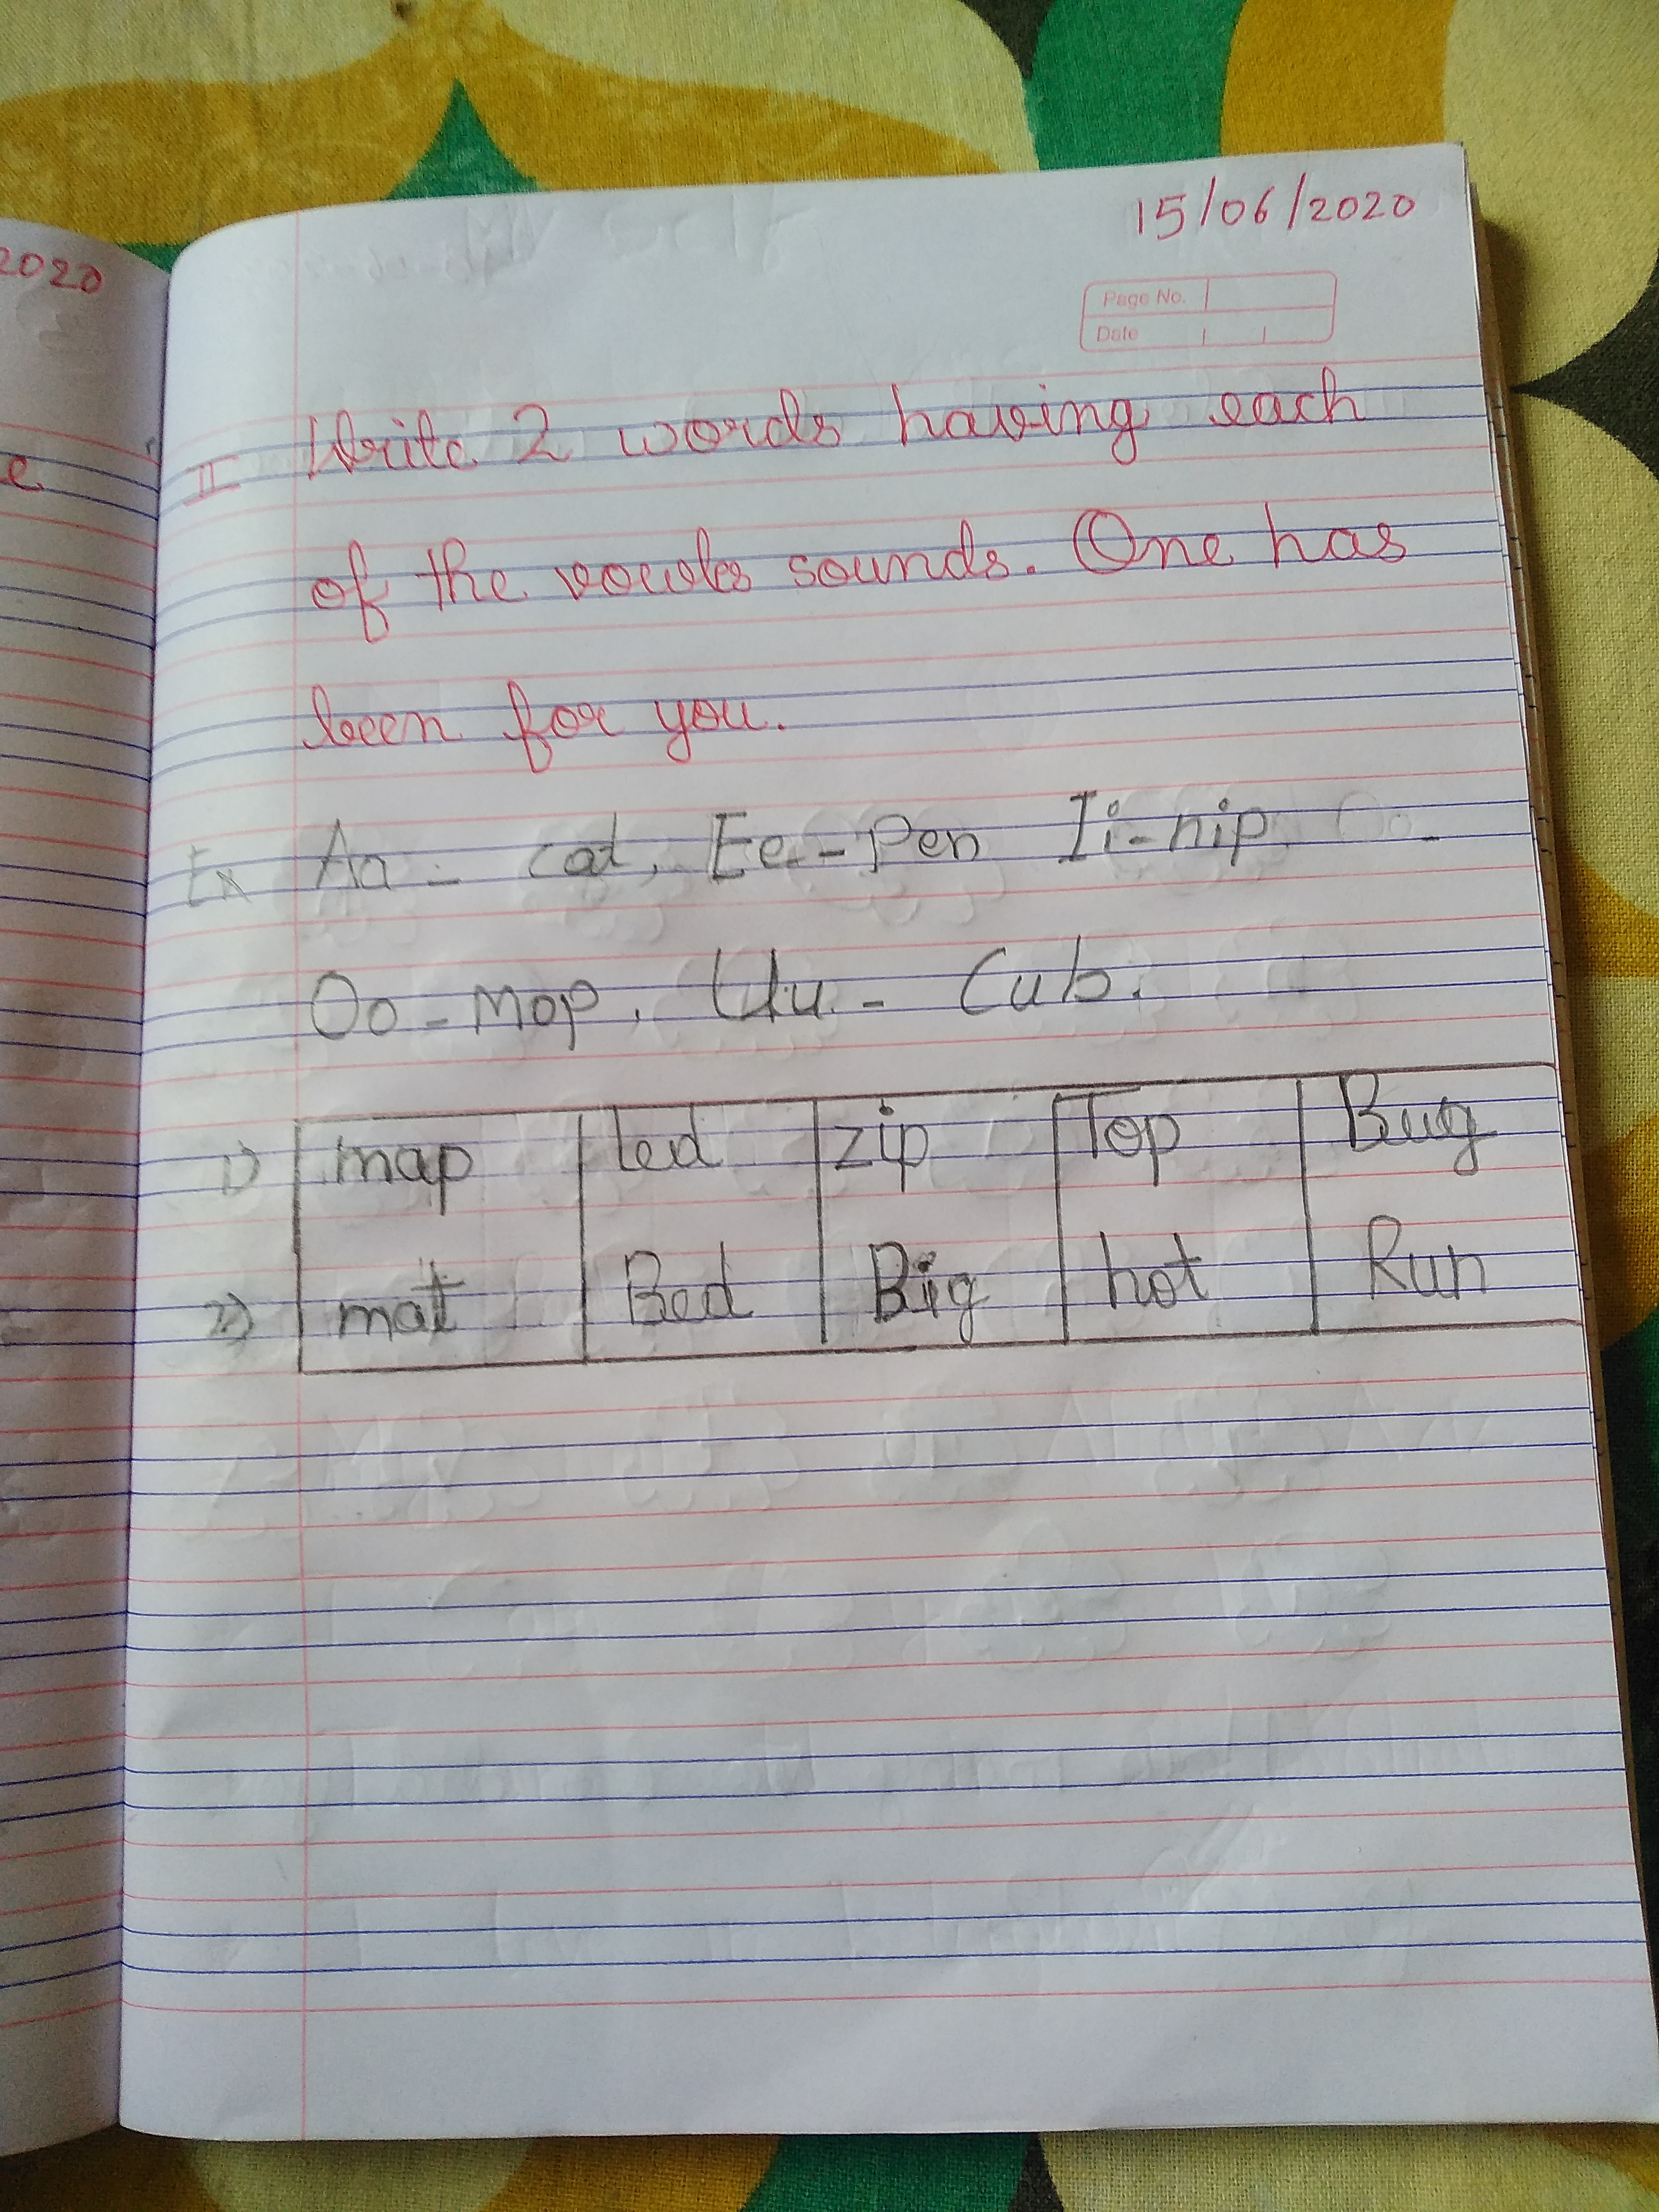 2020
15/06/2020
Page No.
Date
e
II Write 2 words having each
of the vowles sounds. One has
been for you.
Ex Aa - cat, Ee - Pen Ii - nip. Oo -
Oo - mop. Uu - Cub.
1) map led zip Top Bug
2) matt Bed Big hot Run